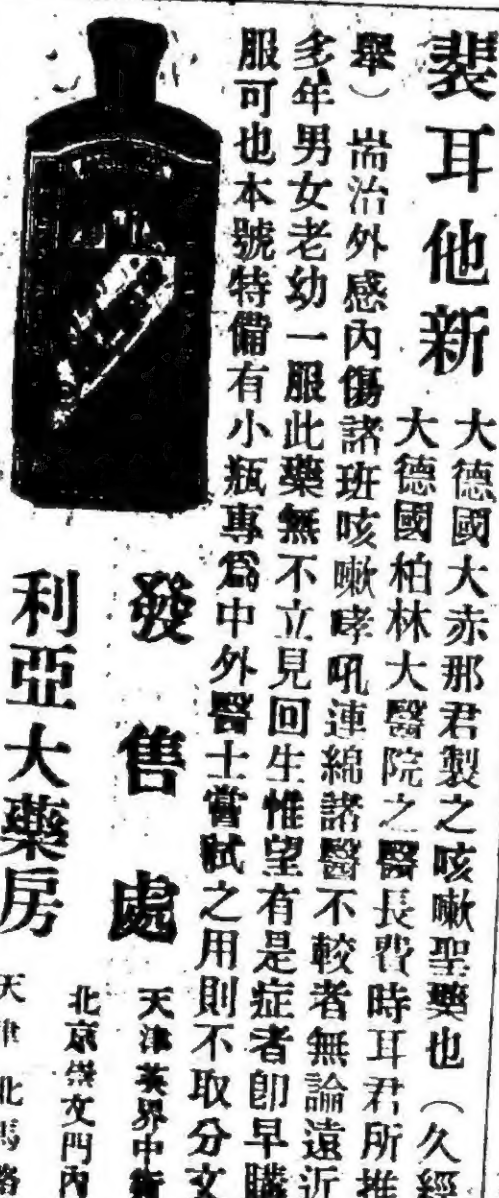 裴耳他新
大德國大赤那君製之咳嗽聖藥也（久經
大德國柏林大醫院之醫長費時耳君所推
舉）耑治外感內傷諸班咳嗽哮吼連綿諸醫不較者無論遠近
多年男女老幼一服此藥無不立見回生惟望有是症者卽早購
服可也本號特備有小瓶專爲中外醫士嘗試之用則不取分文
發售處
天津英界中街
北京崇文門內
利亞大藥房
天津北馬路